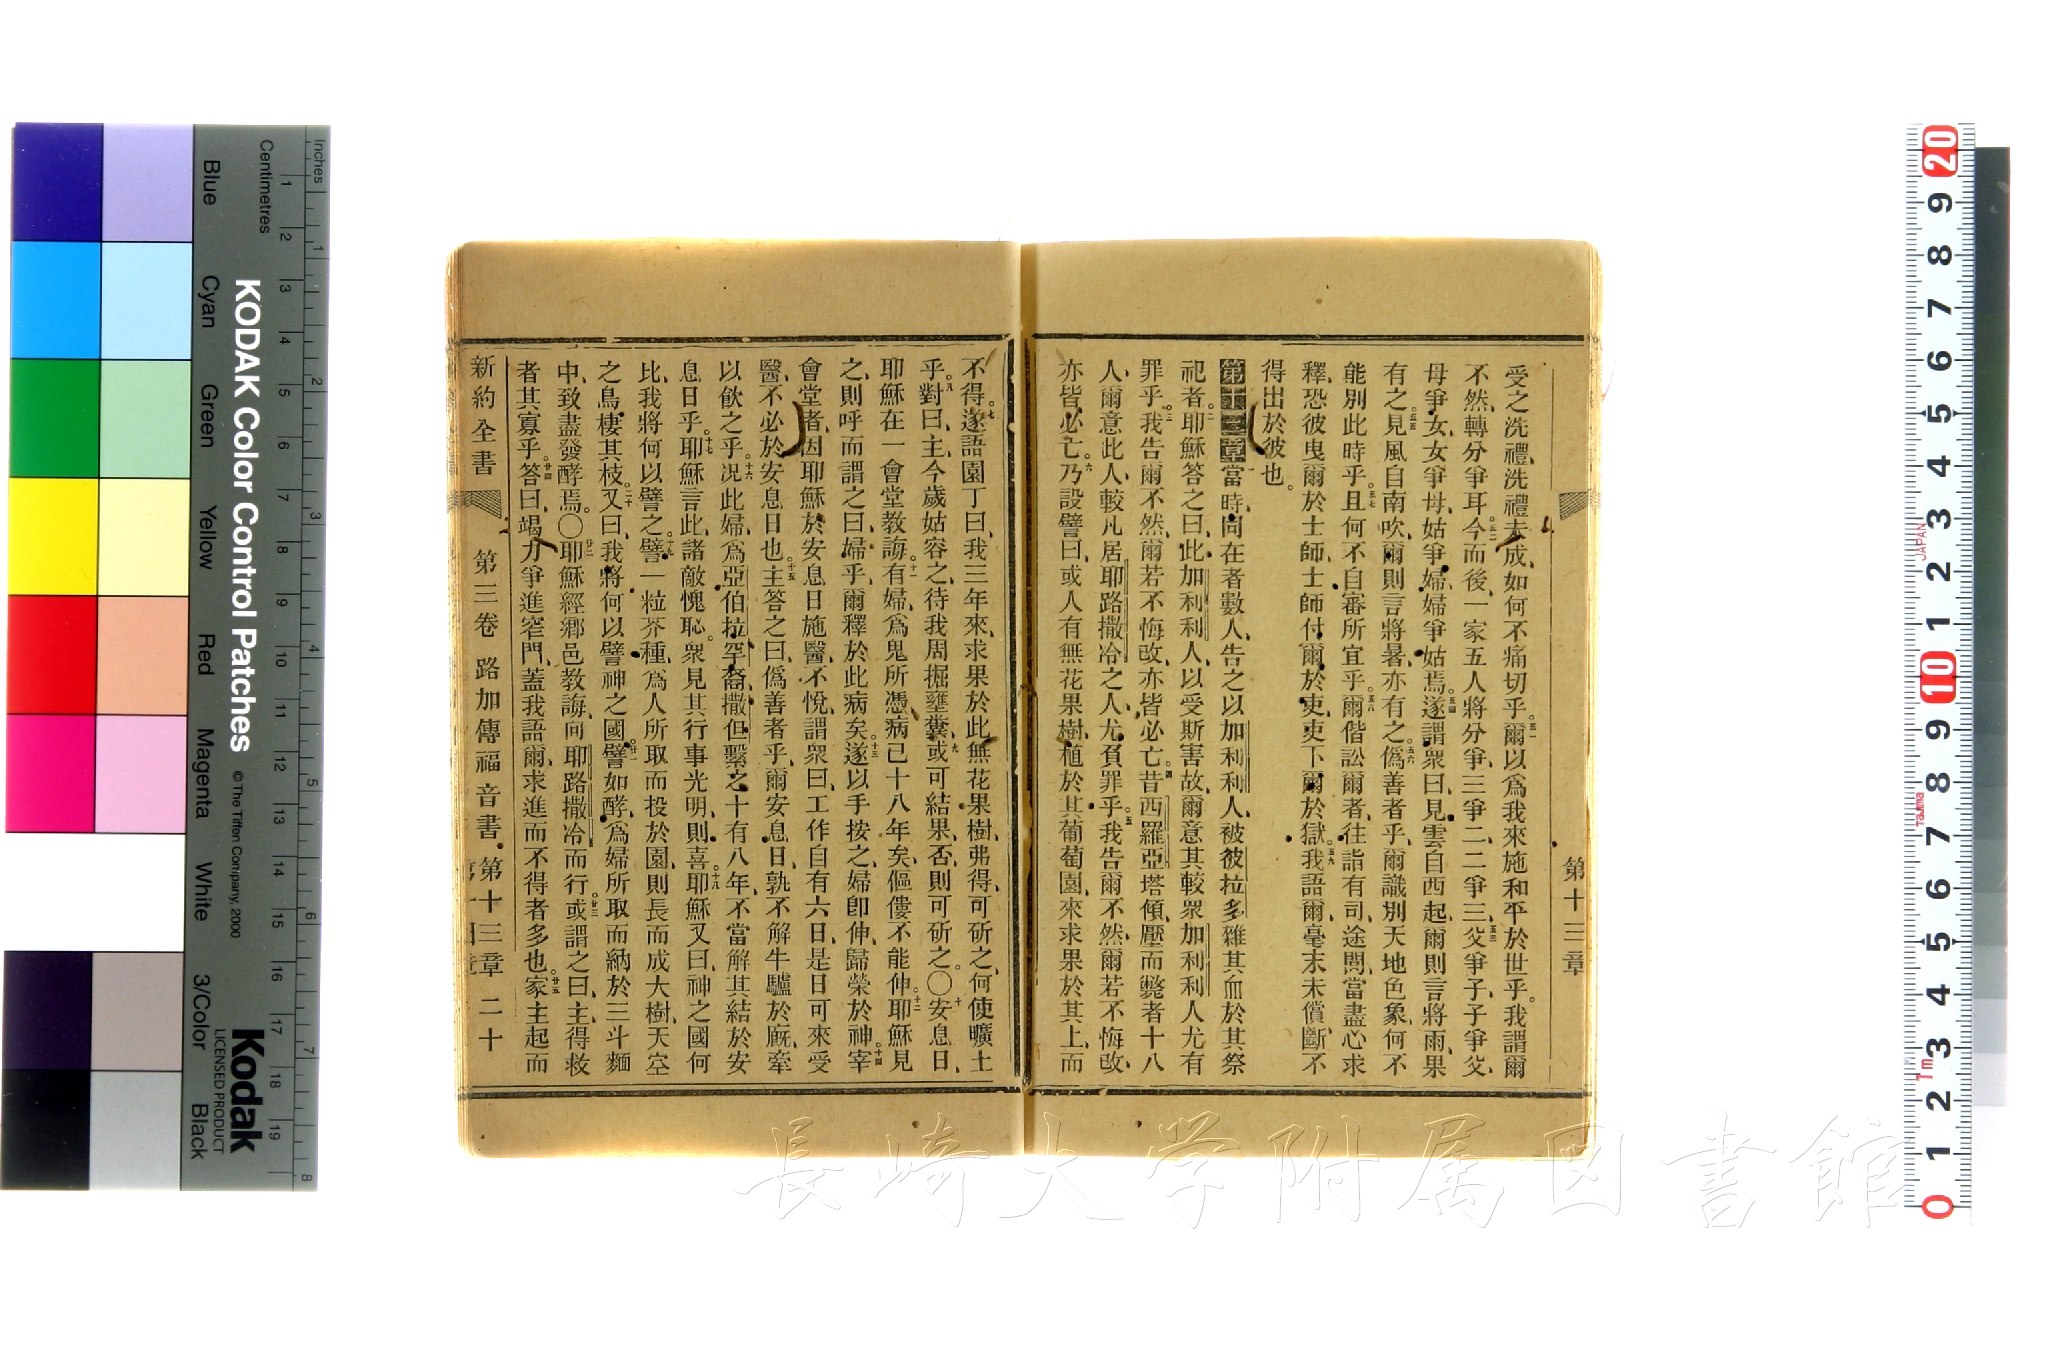 第十三章
受之洗禮、洗禮未成、如何不痛切乎、五一爾以爲我來施和平於世乎。我謂爾
不然、轉分爭耳、五二今而後、一家五人將分爭、三爭二、二爭三、五三父爭子、子爭父、
母爭女、女爭母、姑爭婦、婦爭姑焉、五四遂謂衆曰、見雲自西起、爾則言將雨、果
有之、五五見風自南吹、爾則言將暑、亦有之、五六僞善者乎、爾識別天地色象、何不
能別此時乎、五七且何不自審所宜乎、五八爾偕訟爾者、往詣有司、途間當盡心求
釋、恐彼曳爾於士師、士師付爾於吏、吏下爾於獄、五九我語爾、毫末未償、斷不
得出於彼也。
第十三章 一當時、同在者數人、告之以加利利人、被彼拉多雜其血於其祭
祀者、二耶穌答之曰、此加利利人、以受斯害故、爾意其較衆加利利人尤有
罪乎、三我告爾不然、爾若不悔改、亦皆必亡、四昔西羅亞塔傾、壓而斃者十八
人、爾意此人、較凡居耶路撒冷之人、尤負罪乎、五我告爾不然、爾若不悔改、
亦皆必亡、六乃設譬曰、或人有無花果樹、植於其葡萄園、來求果於其上、而
不得、七遂語園丁曰、我三年來、求果於此無花果樹、弗得、可斫之、何使曠土
乎、八對曰、主、今歲姑容之、待我周掘壅糞、九或可結果、否則可斫之。〇十安息日、
耶穌在一會堂教誨、十一有婦、爲鬼所憑、病已十八年矣、傴僂不能伸、十二耶穌見
之、則呼而謂之曰、婦乎、爾釋於此病矣、十三遂以手按之、婦卽伸、歸榮於神、十四宰
會堂者、因耶穌於安息日施醫、不悅、謂衆曰、工作自有六日、是日可來受
醫、不必於安息日也、十五主答之曰、僞善者乎、爾安息日、孰不解牛驢於廐、牽
以飲之乎、十六况此婦、爲亞伯拉罕裔、撒但繫之、十有八年、不當解其結於安
息日乎、十七耶穌言此、諸敵愧恥。衆見其行事光明、則喜、十八耶穌又曰、神之國何
比、我將何以譬之、十九譬一粒芥種、爲人所取而投於園、則長而成大樹、天空
之鳥、棲其枝、二十又曰、我將何以譬神之國、廿一譬如酵、爲婦所取而納於三斗麵
中、致盡發酵焉。〇廿二耶穌經鄉邑教誨、向耶路撒冷而行、廿三或謂之曰、主、得救
者其寡乎、廿四答曰、竭力爭進窄門、蓋我語爾、求進而不得者多也、廿五家主起而
新約全書 第三卷 路加傳福音書 第十三章 二十
長崎大学附属図書館
Inches
Centimetres
KODAK Color Control Patches
© The Tiffen Company, 2000
Kodak
LICENSED PRODUCT
Blue Cyan Green Yellow Red Magenta White 3/Color Black
1 2 3 4 5 6 7 8 9 10 11 12 13 14 15 16 17 18 19
1 2 3 4 5 6 7 8
20 9 8 7 6 5 4 3 2 1 10 9 8 7 6 5 4 3 2 1 0
JAPAN
Tajima
1m